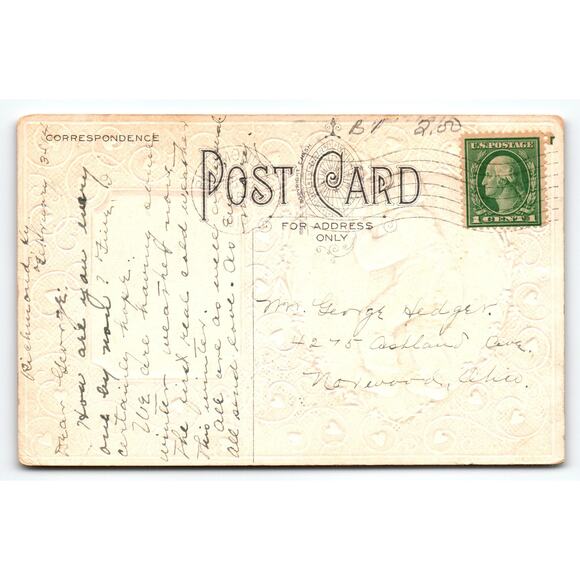 CORRESPONDENCE
POST CARD
FOR ADDRESS
ONLY
BT 2.00
U.S. POSTAGE
1 CENT 1
Mr. George Hedger.
4275 Ashland Ave.
Norwood, Ohio.
Richmond Ky
Dear George:
How are you many
one by now? Fine, I
certainly hope.
We are having some
winter weather now.
The first real cold weather
this winter.
All are as well as usual
All send love. As ever